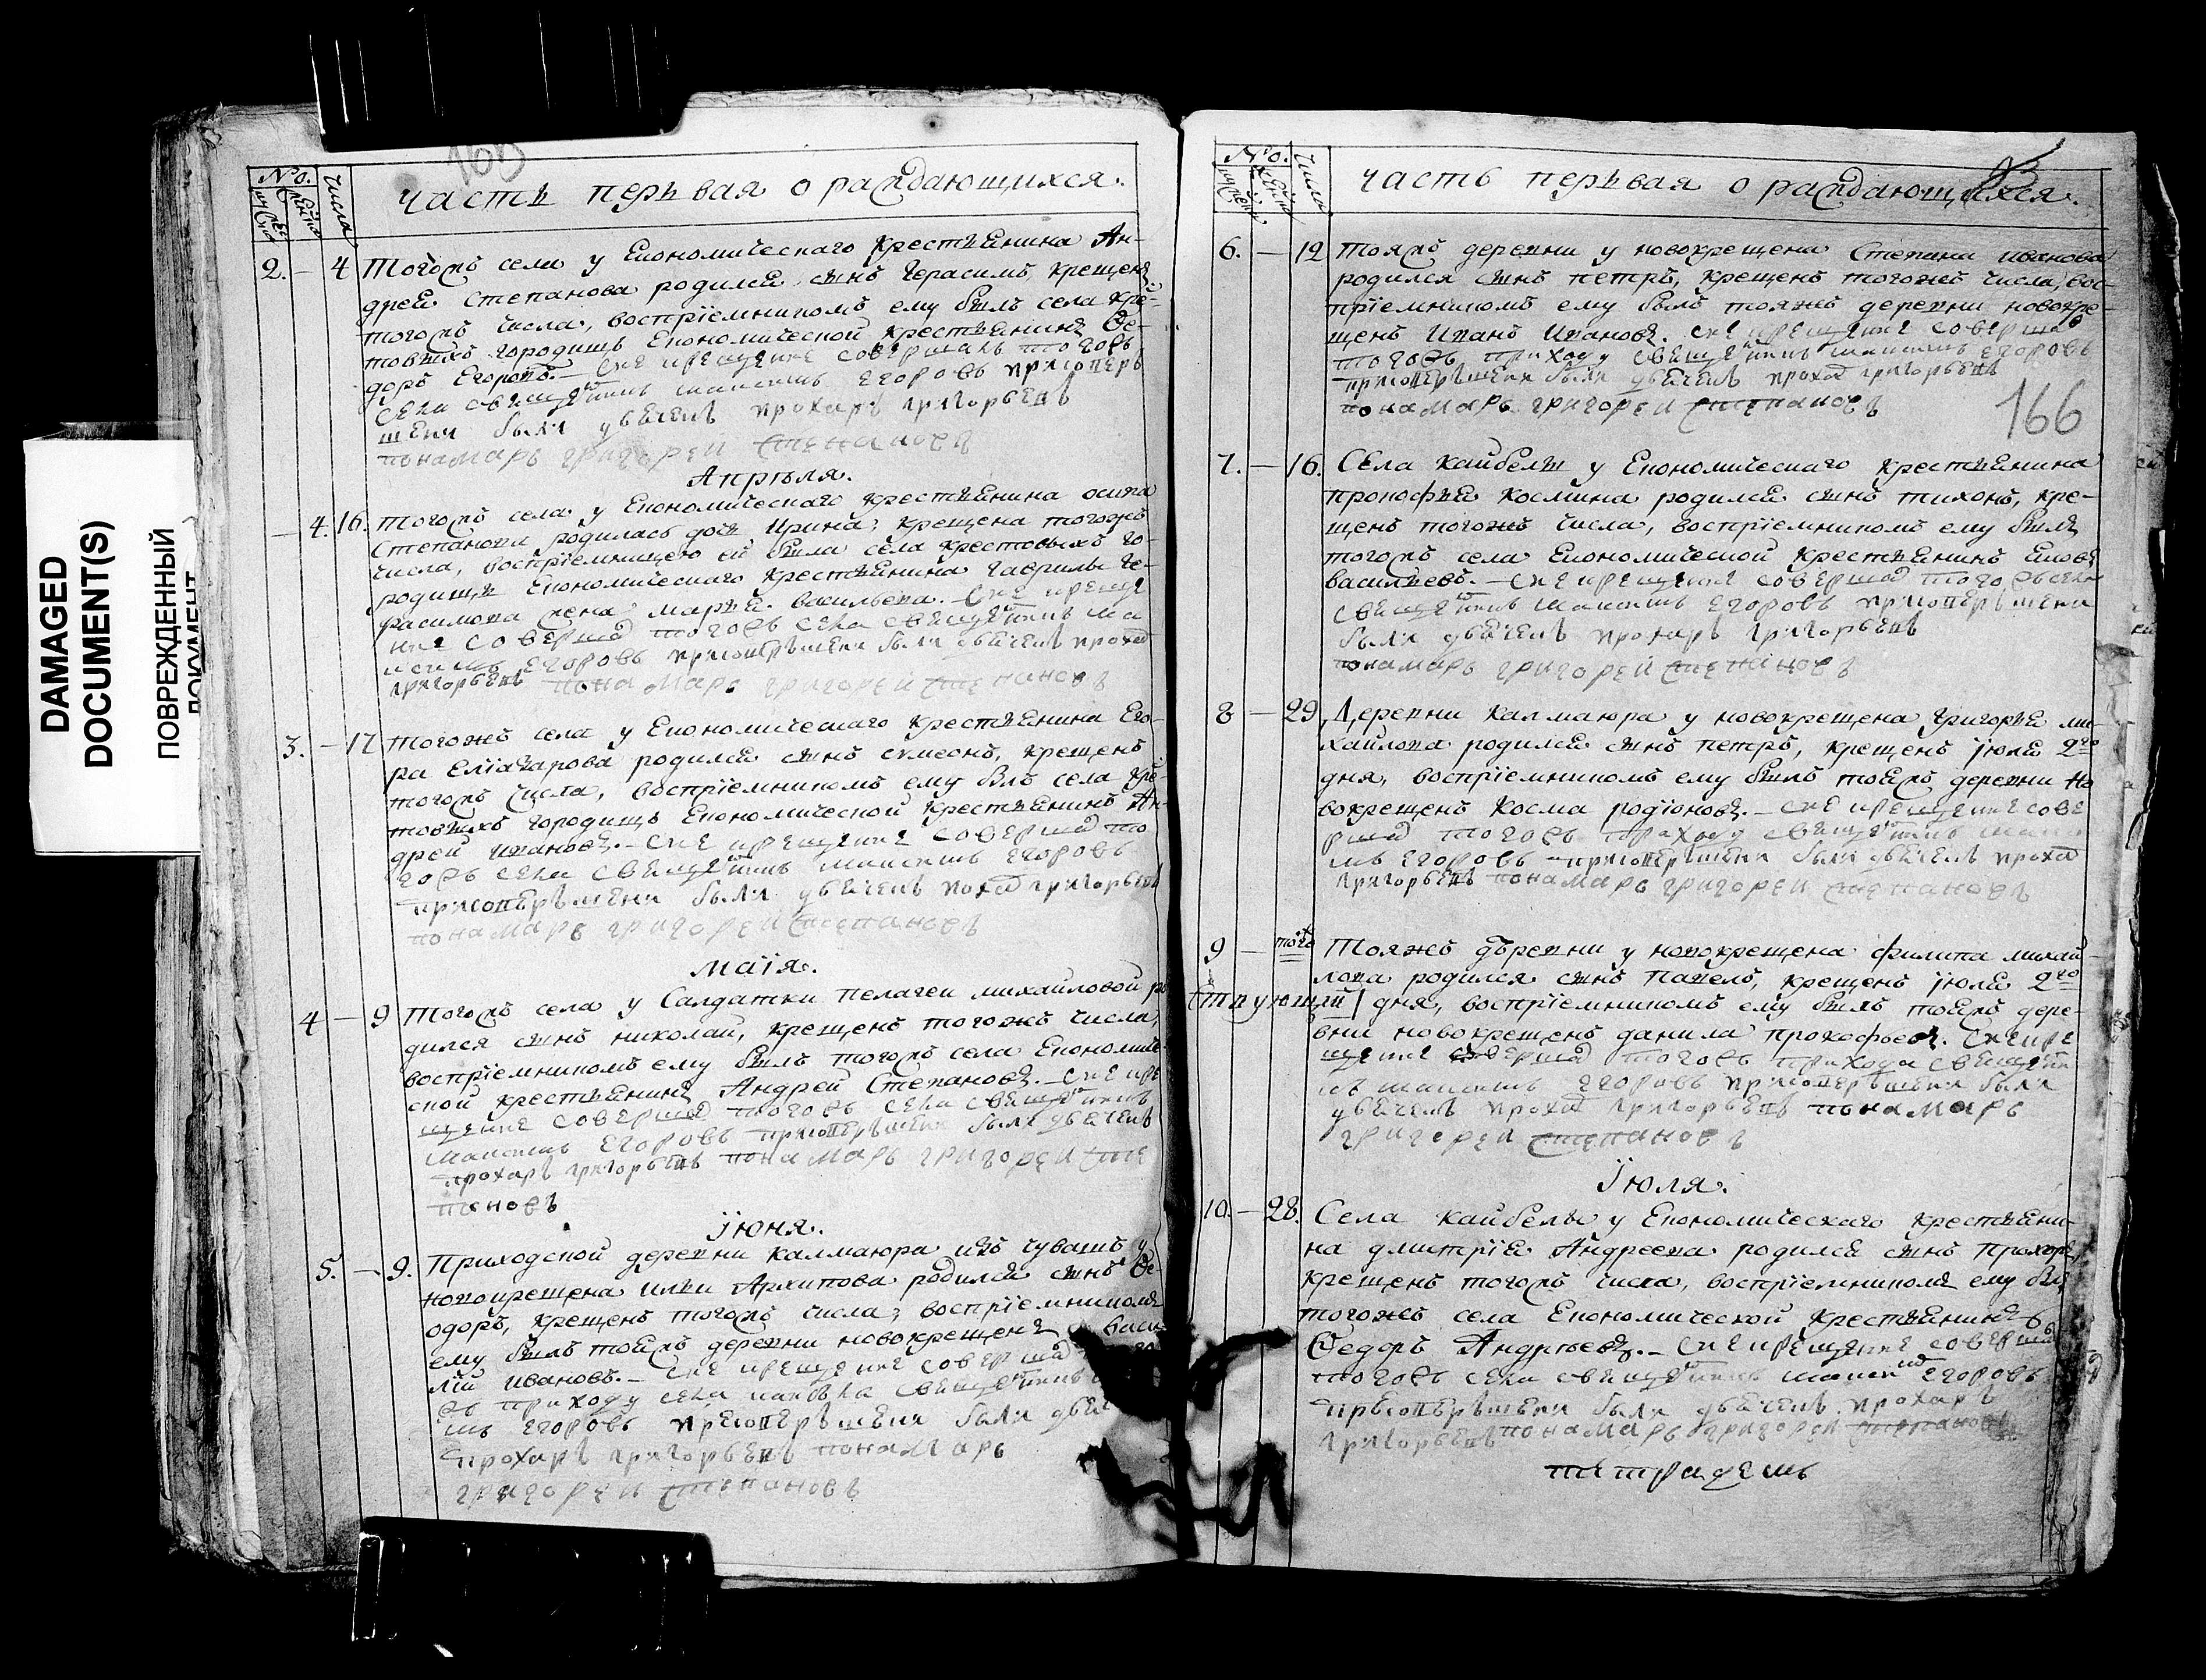 DAMAGED
DOCUMENT(S)
ПОВРЕЖДЕННЫЙ
ДОКУМЕНТ
№
Числа
часть перьвая о раждающихся.
2. – 4 Тогожъ села у Економическаго крестьянина Ан-
дрея Степанова родился сынъ Герасимъ, крещенъ
тогожъ числа, воспрїемникомъ ему былъ села Кре-
товыхъ городищь Економической крестьянинъ Ѳе-
доръ Егоровъ. – Сие крещение совершалъ тогожъ
села священникъ Максимъ Егоровъ при
были Прохаръ Григорьевъ
понамарь Григорей Степановъ
Апрѣля.
– 4. 16. Тогожъ села у Економическаго крестьянина Осипа
Степанова родилась дочь Ирина, крещена тогожъ
числа, воспрїемницею ей была села Крестовыхъ Го-
родищь Економическаго крестьянина Гаврилы Ге-
расимова жена Марья Васильева. – Сие креще
ние совершал тогожъ села священникъ Ма
ксимъ Егоровъ при были Прохар
Григорьевъ понамарь Григорей Степановъ
3. – 17 Тогожъ села у Економическаго крестьянина Его-
ра Елїазарова родился сынъ Сѵмеонъ, крещенъ
тогожъ числа, воспрїемникомъ ему былъ села Кре-
товыхъ городищь Економической крестьянинъ Ан-
дрей Ивановъ. – Сие крещение совершал то
гожъ села священникъ Максимъ Егоровъ
при были Григорьевъ
понамарь Григорей Степановъ
Маїя.
4 – 9 Тогожъ села у Салдатки Пелагеи Михайловой ро
дился сынъ Николай, крещенъ тогожъ числа,
воспрїемникомъ ему былъ тогожъ села Економиче-
ской крестьянинъ Андрей Степановъ. – Сие кре
щение совершал тогожъ села священникъ
Максимъ Егоровъ при были
Прохаръ Григорьевъ понамарь Григорей Сте
пановъ
Їюня.
5. – 9. Приходской деревни Калмаюра изъ чувашъ у
новокрещена Ильи Архипова родился сынъ Ѳе-
одоръ, крещенъ тогожъ числа; воспрїемникомъ
ему былъ тойжъ деревни новокрещенъ Васи
лїй Ивановъ. – Сие крещение совершал
приходу села священникъ
мъ Егоровъ при были
Прохаръ Григорьевъ понамарь
Григорей Степановъ
№
Числа
часть перьвая о раждающихся.
6. – 12 Тояжъ деревни у новокрещена Степана Иванова
родился сынъ Петръ, крещенъ тогожъ числа, вос-
прїемникомъ ему былъ тояжъ деревни новокре-
щенъ Иванъ Ивановъ. Сие крещение совершал
тогожъ приходу священникъ Максимъ Егоровъ
при были Прохар Григорьевъ
понамарь Григорей Степановъ
166
7. – 16. Села Кайбелы у Економическаго крестьянина
Прокофья Космина родился сынъ Тихонъ, кре-
щенъ тогожъ числа, воспрїемникомъ ему былъ
тогожъ села Економической крестьянинъ Яковъ
Васильевъ. – Сие крещение совершал тогожъ села
священникъ Максимъ Егоровъ при
были Прохаръ Григорьевъ
понамарь Григорей Степановъ
8 – 29 Деревни Калмаюра у новокрещена Григорья Ми-
хайлова родился сынъ Петръ, крещенъ Їюля 2го
дня, воспрїемникомъ ему былъ тойжъ деревни но
вокрещенъ Косма Родїоновъ. – Сие крещение сове
ршал тогожъ приходу священникъ Макси
мъ Егоровъ при были Прохар
Григорьевъ понамарь Григорей Степановъ
9 – тогож Тояжъ деревни у новокрещена Филипа Михай-
лова родился сынъ Павелъ, крещенъ Їюля 2го
дня, воспрїемникомъ ему былъ тойжъ дере-
вни новокрещенъ Данила Прокофьевъ. Сие кре
щение совершал тогожъ прихода священни
къ Максимъ Егоровъ при были
Прохар Григорьевъ понамарь
Григорей Степановъ
Їюля.
10. – 28. Села Кайбелы у Економическаго крестьяни-
на Дмитрїя Андреева родился сынъ Прохоръ,
крещенъ тогожъ числа, воспрїемникомъ ему былъ
тогожъ села Економической крестьянинъ
Ѳедоръ Андрѣевъ. – Сие крещение соверша
тогожъ села священникъ Максим Егоровъ
при были Прохаръ
Григорьевъ понамарь Григорей Степановъ